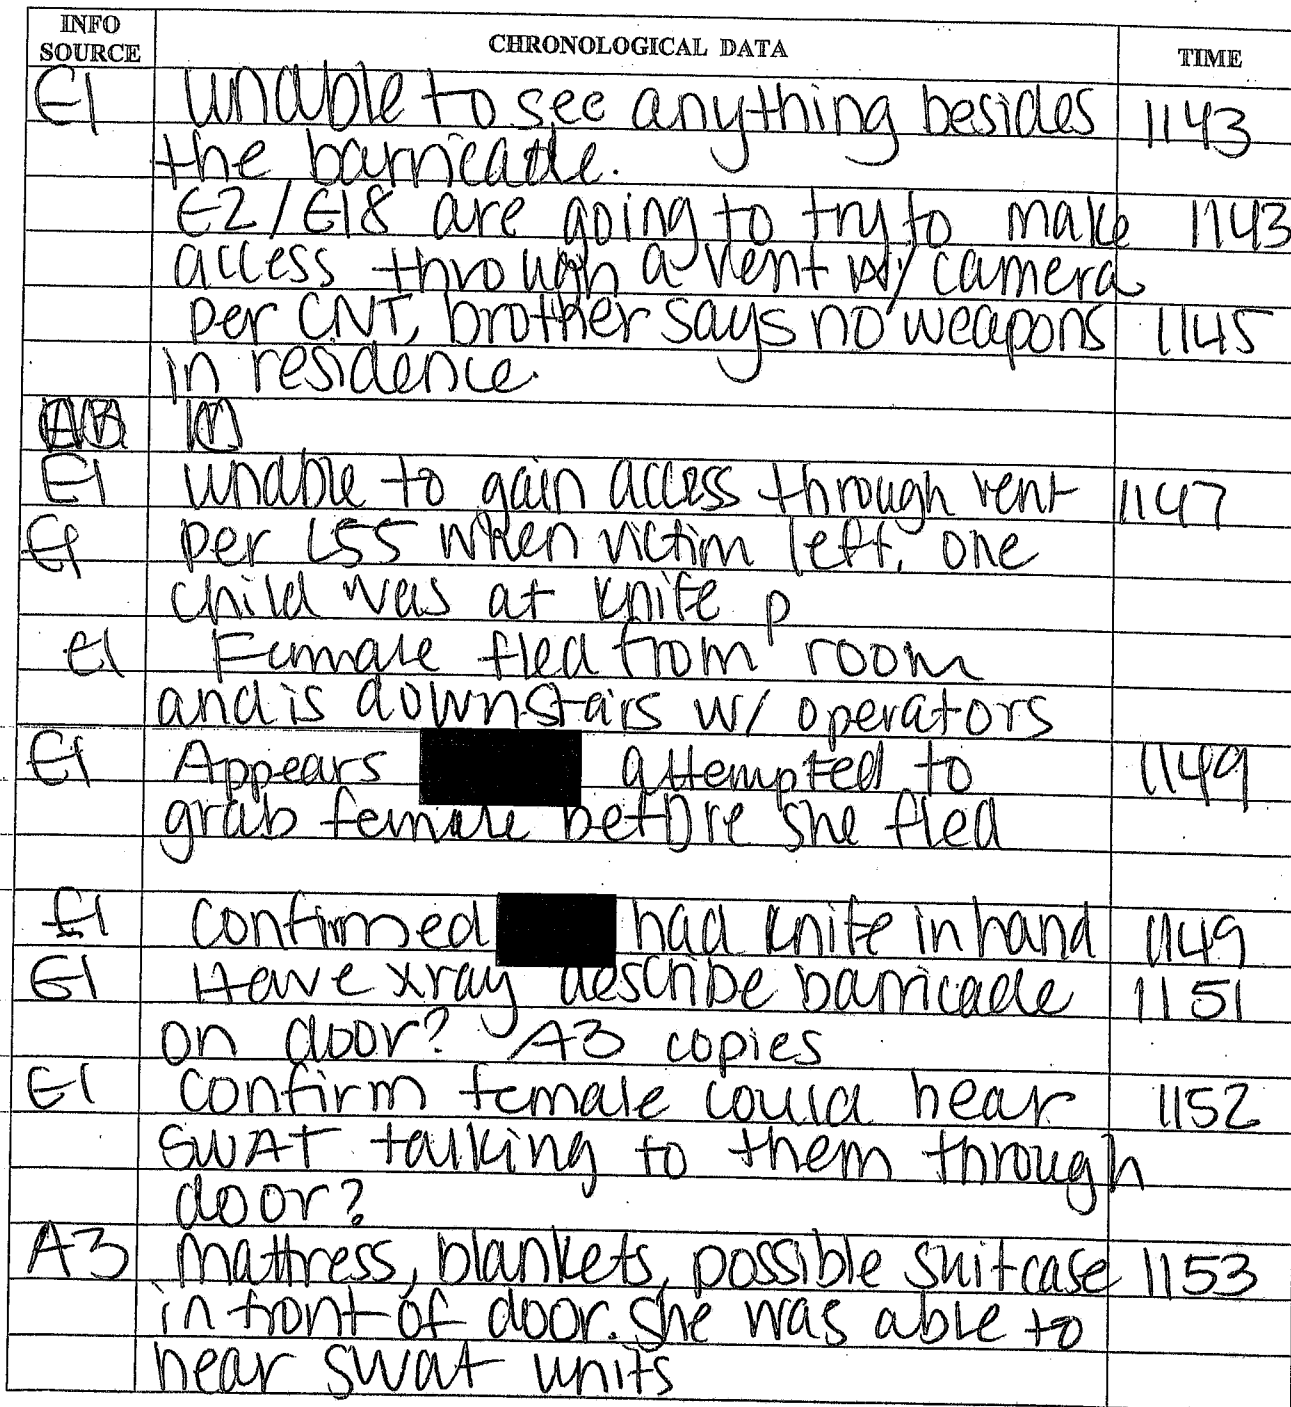 INFO SOURCE CHRONOLOGICAL DATA TIME
E1 unable to see anything besides 1143
the barricade.
E2/E18 are going to try to make 1143
access through a vent w/ camera
per CNT, brother says no weapons 1145
in residence.
E1 unable to gain access through vent 1147
E1 per L55 when victim left, one
child was at knife p
E1 Female fled from room
and is downstairs w/ operators
E1 Appears attempted to 1149
grab female before she fled
E1 confirmed had knife in hand 1149
E1 Have xray describe barricade 1151
on door? A3 copies
E1 confirm female could hear 1152
SWAT talking to them through
door?
A3 mattress, blankets, possible suitcase 1153
in front of door. she was able to
hear swat units